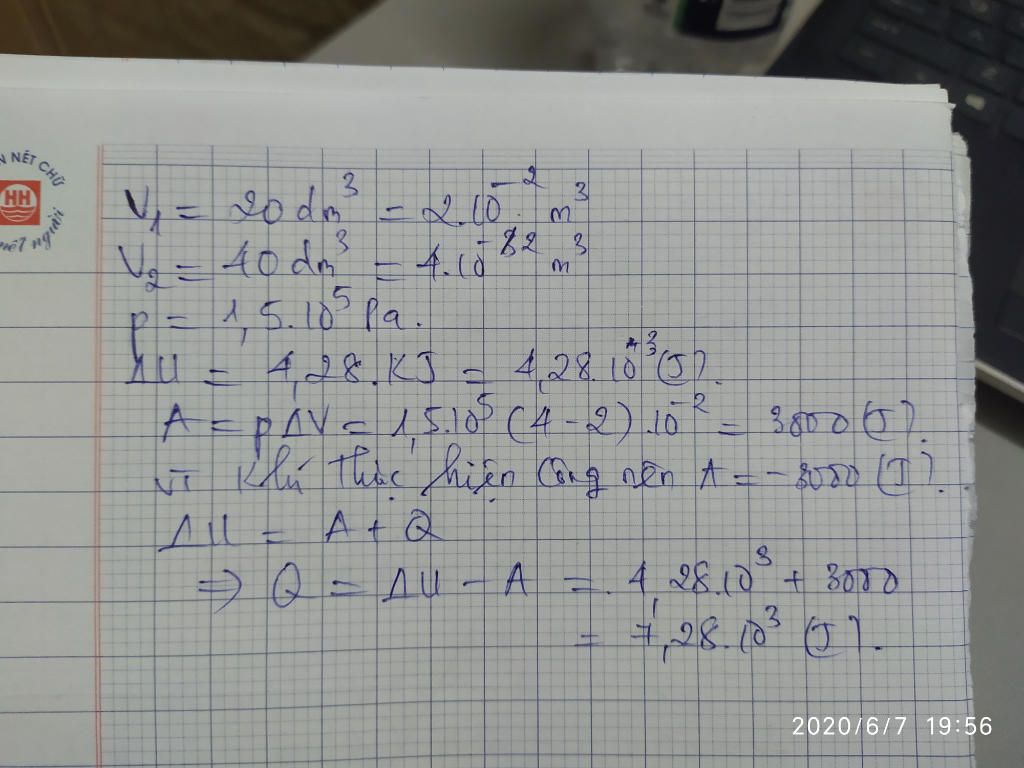 N NÉT CHỮ
HH
nết người
V₁ = 20 dm³ = 2.10⁻² m³
V₂ = 40 dm³ = 4.10⁻² m³
p = 1,5.10⁵ Pa.
ΔU = 4,28.KJ = 4,28.10³ (J).
A = pΔV = 1,5.10⁵ (4-2).10⁻² = 3000 (J).
Vì Khí thực hiện công nên A = -3000 (J).
ΔU = A + Q
⇒ Q = ΔU - A = 4,28.10³ + 3000
= 7,28.10³ (J).
2020/6/7 19:56